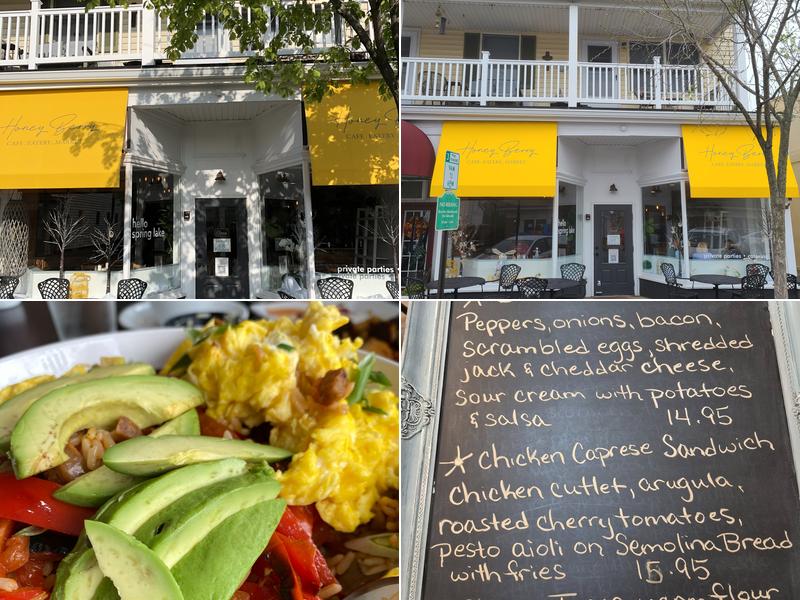 Honey Berry
CAFE . EATERY . MARKET
Honey
hello
spring lake
private parties •
Honey Berry
CAFE . EATERY . MARKET
Honey Berry
CAFE . EATERY . MARKET
NO PARKING
hello
spring lake
private parties • catering
Peppers, onions, bacon,
scrambled eggs, shredded
jack & cheddar cheese,
sour cream with potatoes
& salsa 14.95
Chicken Caprese Sandwich
chicken cutlet, arugula,
roasted cherry tomatoes,
pesto aioli on Semolina Bread
with fries 15.95
flour